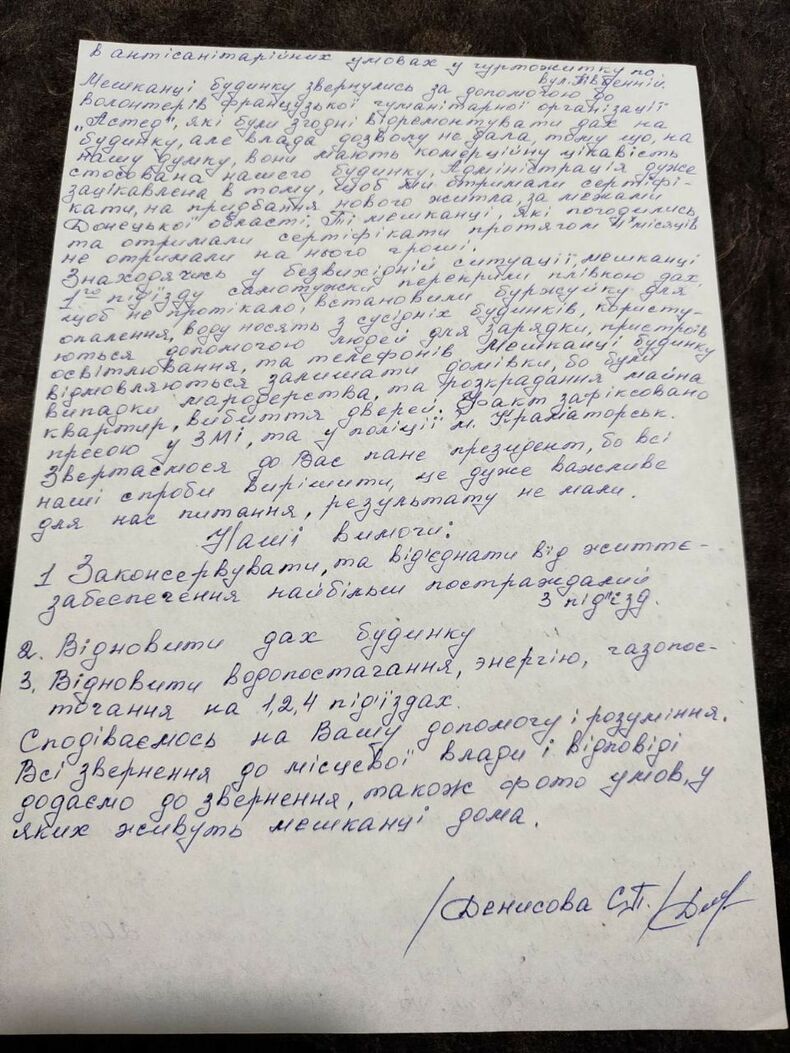 в антісанітарійних умовах у гуртожитку по
вул. Південній.
Мешканці будинку звернулись за допомогою до
волонтерів французької гуманітарної організації
"Астед", які були згодні відремонтувати дах на
будинку, але влада дозволу не дала, тому що, на
нашу думку, вони мають комерційну цікавість
стосовна нашего будинку. Адміністрація дуже
зацікавлена в тому, щоб ми отримали сертіфі-
кати, на придбання нового житла, за межами
Донецької області. Ті мешканці, які погодились
та отримали сертіфікати протягом 11 місяців
не отримали на нього гроші.
Знаходячись у безвихідній ситуації, мешканці
1го під'їзду самотужки перекрили плівкою дах,
щоб не протікало, встановили буржуйку для
опалення, воду носять з сусідніх будинків, користу-
ються допомогою людей для зарядки, пристроїв
освітлювання, та телефонів. Мешканці будинку
відмовляються залишати домівки, бо були
випадки мародерства, та розкрадання майна
квартир, вибиття дверей. Факт зафіксовано
пресою у ЗМІ, та у поліції м. Краматорськ.
Звертаємося до Вас пане президент, бо всі
наші спроби вирішити, це дуже важливе
для нас питання, результату не мали.
Наші вимоги:
1 Законсервувати, та від'єднати від життє-
забеспечення найбільш постраждалий
3 під'їзд.
2. Відновити дах будинку
3. Відновити водопостагання, энергію, газопос-
тачання на 1,2,4 під'їздах.
Сподіваємось на Вашу допомогу і розуміння.
Всі звернення до місцевої влади і відповіді
додаємо до звернення, також фото умов, у
яких живуть мешканці дома.
/Денисова С.П./